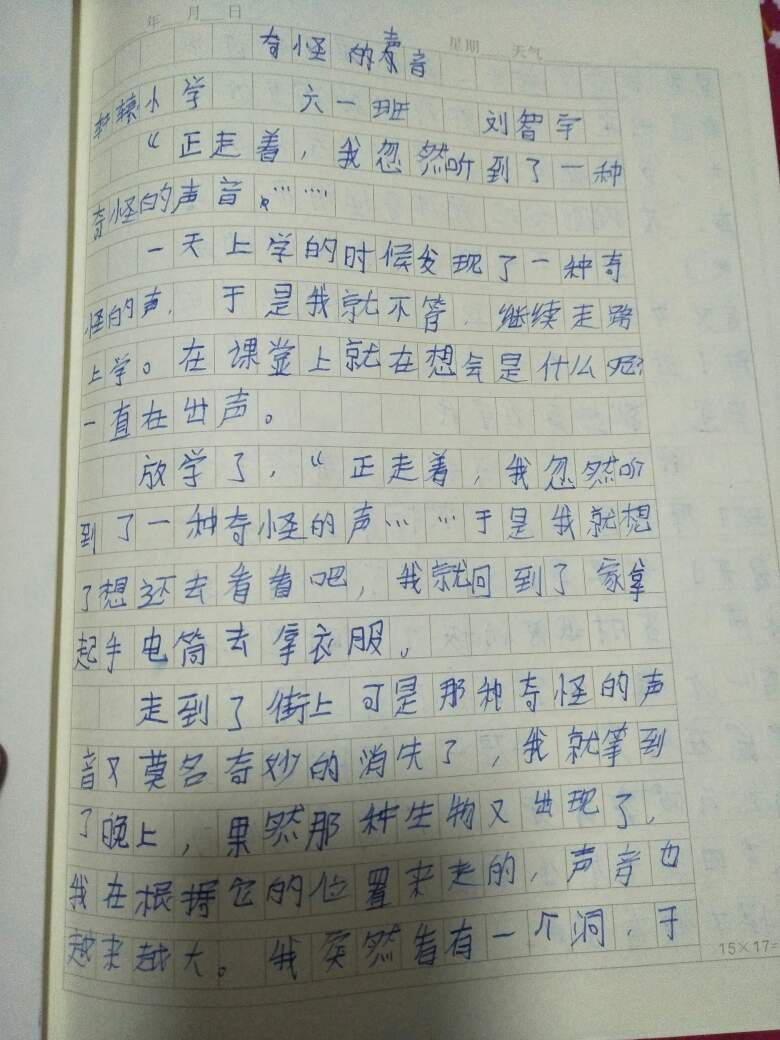 年 月 日
星期 天气
奇怪的声音
小学 六一班 刘智宇
“正走着，我忽然听到了一种
奇怪的声音。……
一天上学的时候发现了一种奇
怪的声，于是我就不管，继续走路
上学。在课堂上就在想会是什么呢？
一直在出声。
放学了，“正走着，我忽然听
到了一种奇怪的声……于是我就想
了想还去看看吧，我就回到了家拿
起手电筒去拿衣服。
走到了街上可是那种奇怪的声
音又莫名奇妙的消失了，我就等到
了晚上，果然那种生物又出现了，
我在根据它的位置来走的，声音也
越来越大。我突然看有一个洞，于
15×17=